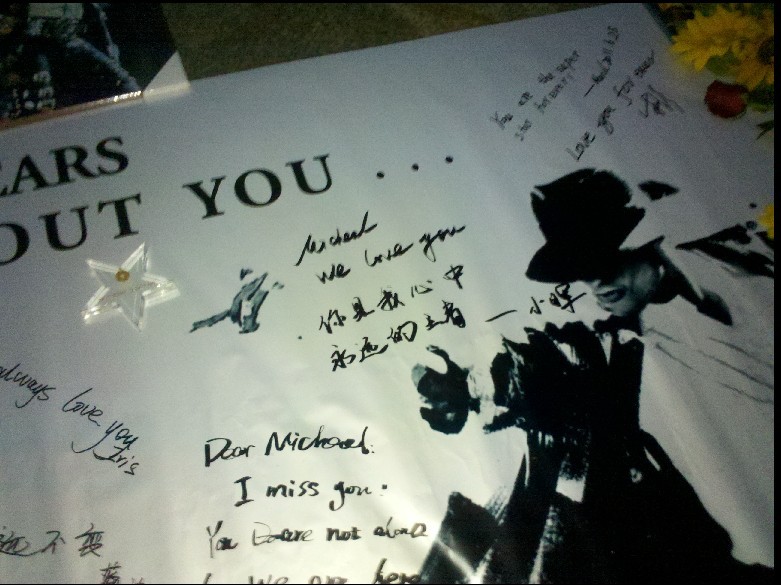 EARS
OUT YOU ...
You are the super
star forever!
Love you for ever
Michael
We love you
你是我心中
永远的王者 — 小晖
always love you
Iris
Dear Michael:
I miss you.
You are not alone
We are here
远不变